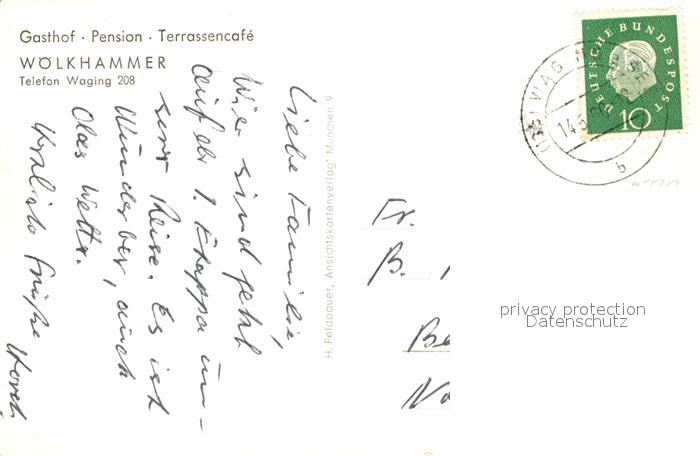 Gasthof · Pension · Terrassencafé
WÖLKHAMMER
Telefon Waging 208
Liebe Familie,
Wir sind jetzt
auf der 1. Etappe un-
serer Reise. Es ist
Wunderbar, auch
das Wetter.
Herzliche Grüße
H. Feldbauer, Ansichtskartenverlag München 9
Fr.
B.
Be
DEUTSCHE BUNDESPOST
10
WAG
14.5
b
privacy protection
Datenschutz